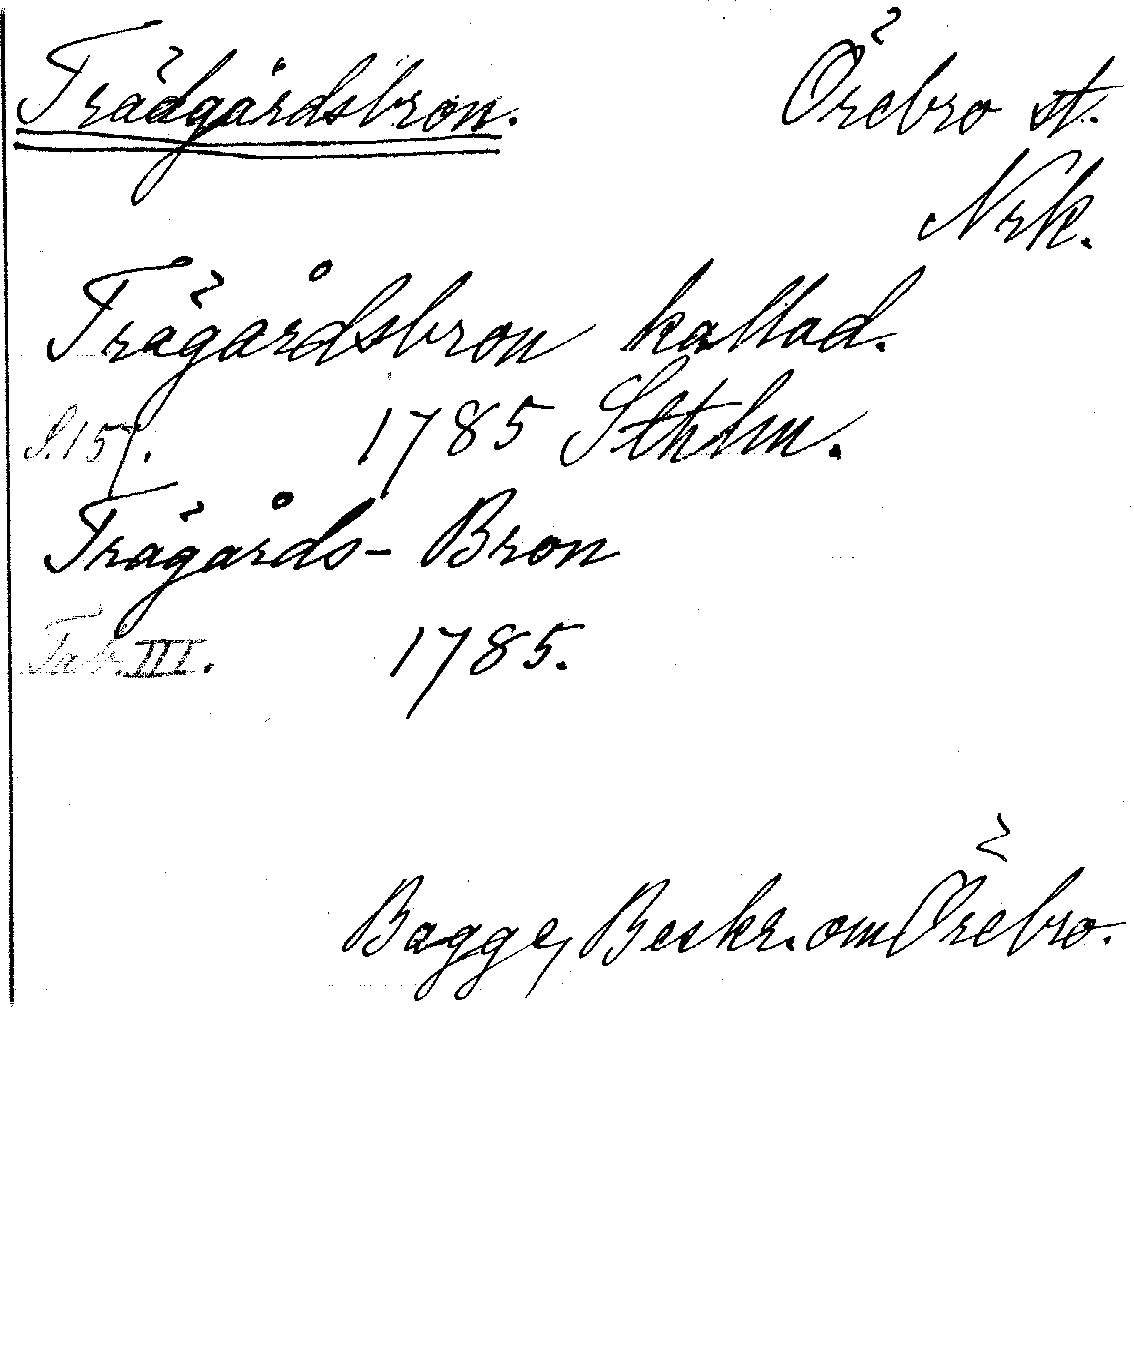 Trädgårdsbron. Örebro st.
Nrk.
Trägårdsbron kallad.
S. 157. 1785 Sthlm.
Trägårds-Bron
Tab. III. 1785.
Bagge, Beskr. om Örebro.